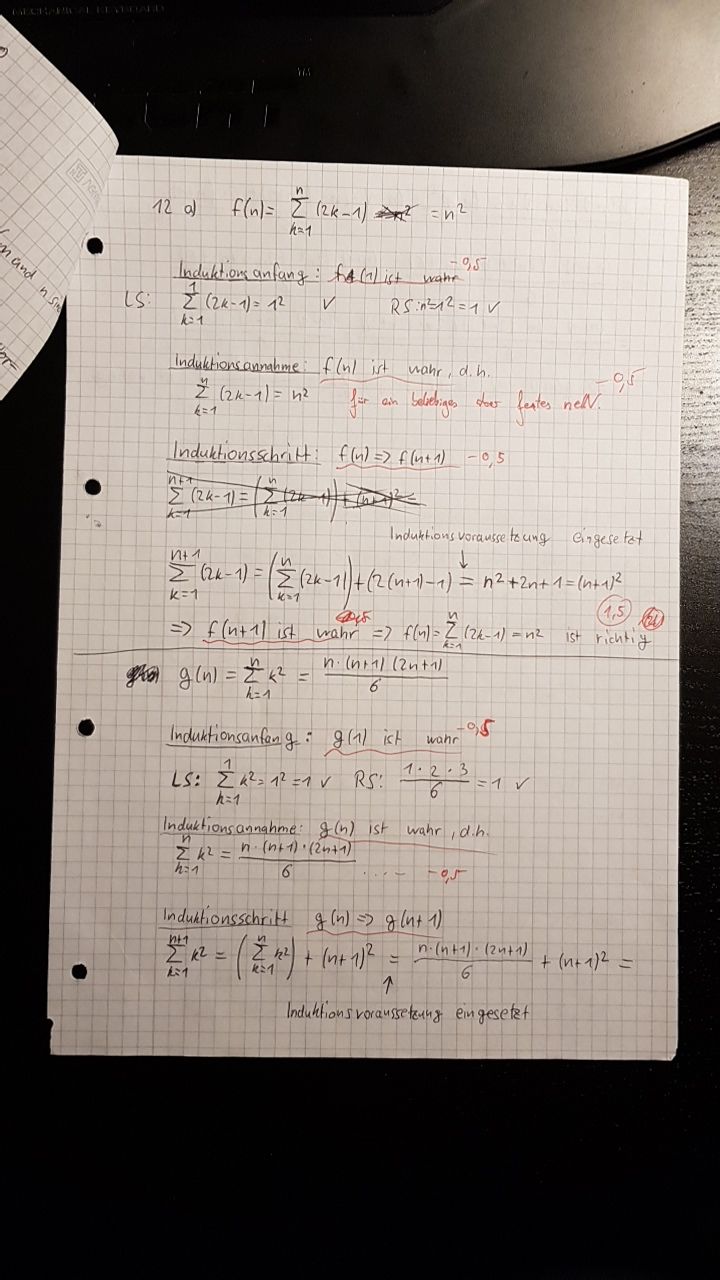 MECHANICAL KEYBOARD
™
12 a) f(n) = ∑_{k=1}^{n} (2k-1) = n²
-0,5
Induktionsanfang: f(1) ist wahr
LS: ∑_{k=1}^{1} (2k-1) = 1² ✓ RS: n²=1²=1 ✓
Induktionsannahme: f(n) ist wahr, d.h.
-0,5
∑_{k=1}^{n} (2k-1) = n² für ein beliebiges aber festes n∈ℕ.
Induktionsschritt: f(n) => f(n+1) -0,5
∑_{k=1}^{n+1} (2k-1) = (∑_{k=1}^{n} (2k-1)) + (n+1)² =
Induktionsvoraussetzung eingesetzt
↓
∑_{k=1}^{n+1} (2k-1) = (∑_{k=1}^{n} (2k-1)) + (2(n+1)-1) = n²+2n+1 = (n+1)²
1,5
=> f(n+1) ist wahr => f(n) = ∑_{k=1}^{n} (2k-1) = n² ist richtig
g(n) = ∑_{k=1}^{n} k² = n·(n+1)(2n+1)/6
-0,5
Induktionsanfang: g(1) ist wahr
LS: ∑_{k=1}^{1} k² = 1² = 1 ✓ RS: 1·2·3/6 = 1 ✓
Induktionsannahme: g(n) ist wahr, d.h.
∑_{k=1}^{n} k² = n·(n+1)·(2n+1)/6 .... -0,5
Induktionsschritt g(n) => g(n+1)
∑_{k=1}^{n+1} k² = (∑_{k=1}^{n} k²) + (n+1)² = n·(n+1)·(2n+1)/6 + (n+1)² =
↑
Induktionsvoraussetzung eingesetzt